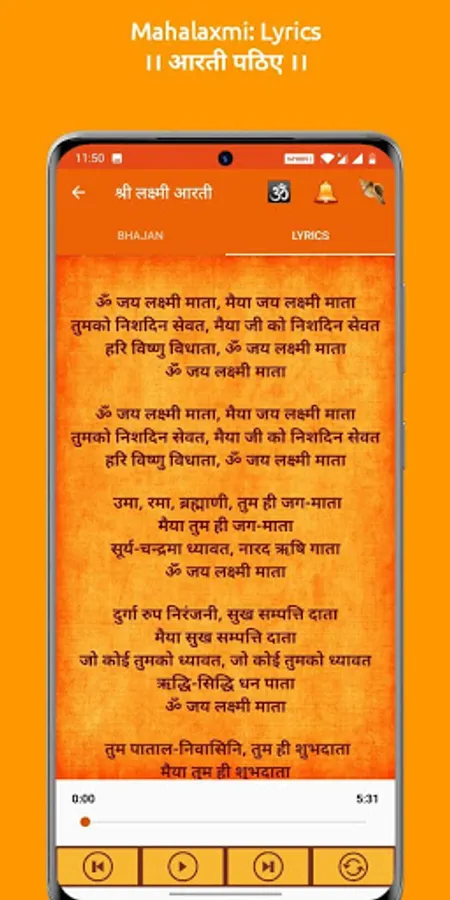 Mahalaxmi: Lyrics
।। आरती पठिए ।।
11:50
श्री लक्ष्मी आरती
BHAJAN
LYRICS
ॐ जय लक्ष्मी माता, मैया जय लक्ष्मी माता
तुमको निशदिन सेवत, मैया जी को निशदिन सेवत
हरि विष्णु विधाता, ॐ जय लक्ष्मी माता
ॐ जय लक्ष्मी माता
ॐ जय लक्ष्मी माता, मैया जय लक्ष्मी माता
तुमको निशदिन सेवत, मैया जी को निशदिन सेवत
हरि विष्णु विधाता, ॐ जय लक्ष्मी माता
उमा, रमा, ब्रह्माणी, तुम ही जग-माता
मैया तुम ही जग-माता
सूर्य-चन्द्रमा ध्यावत, नारद ऋषि गाता
ॐ जय लक्ष्मी माता
दुर्गा रुप निरंजनी, सुख सम्पत्ति दाता
मैया सुख सम्पत्ति दाता
जो कोई तुमको ध्यावत, जो कोई तुमको ध्यावत
ऋद्धि-सिद्धि धन पाता
ॐ जय लक्ष्मी माता
तुम पाताल-निवासिनि, तुम ही शुभदाता
मैया तुम ही शुभदाता
0:00
5:31